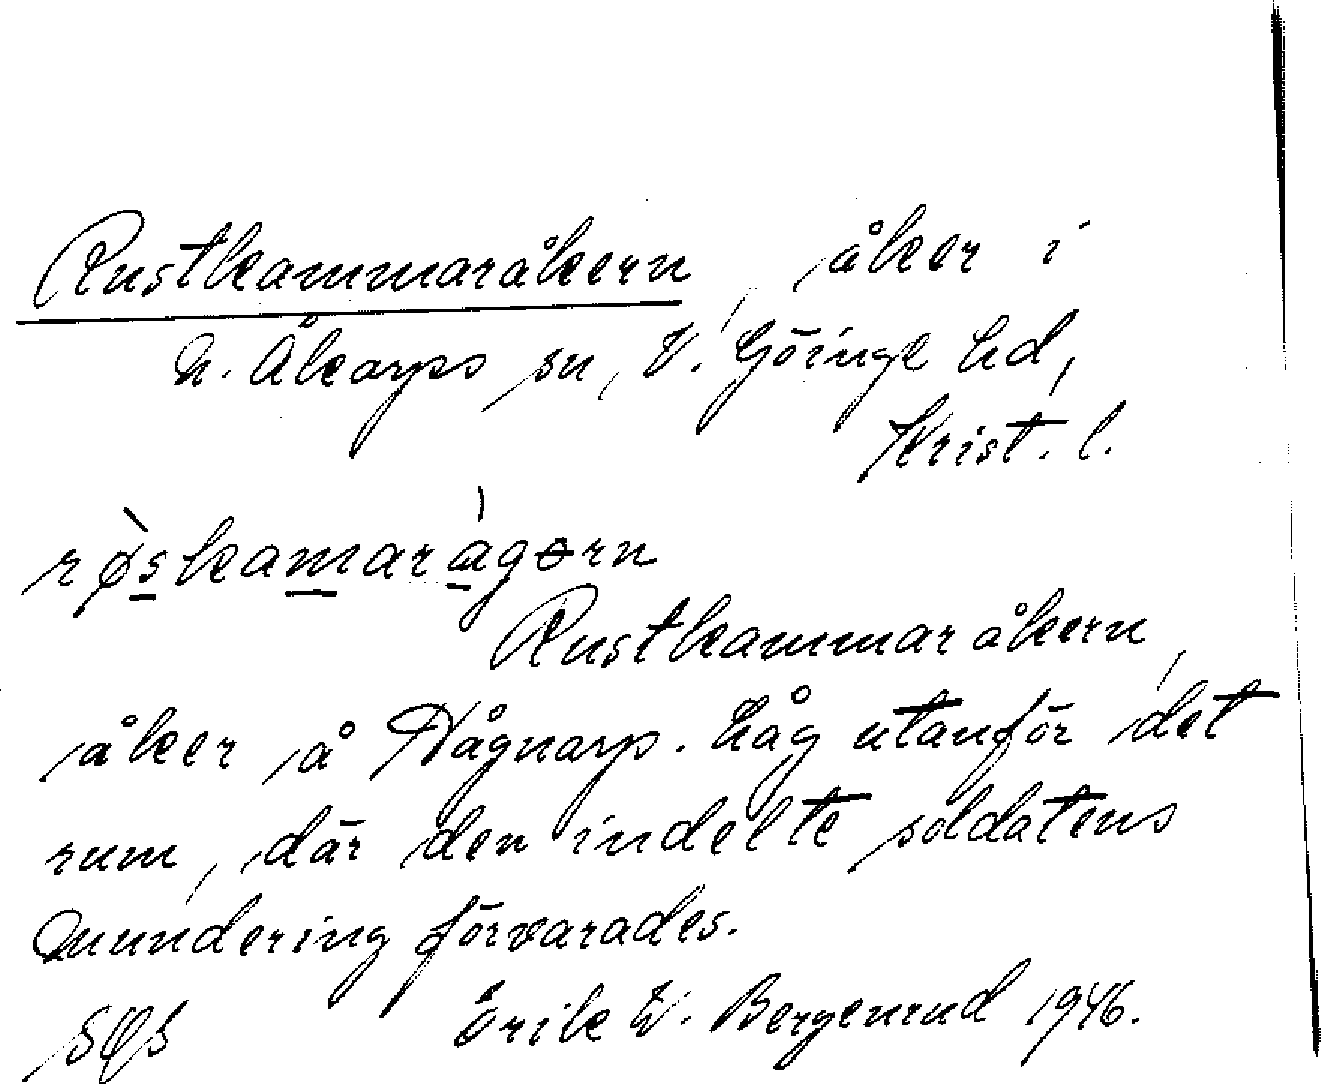 Rustkammaråkern, åker i
N. Åkarps sn, V. Göinge hd,
Krist. l.
røskamarågərn
Rustkammaråkern,
åker å Hågnarp. Låg utanför det
rum, där den indelte soldatens
mundering förvarades.
Erik W. Bergenrud 1946.